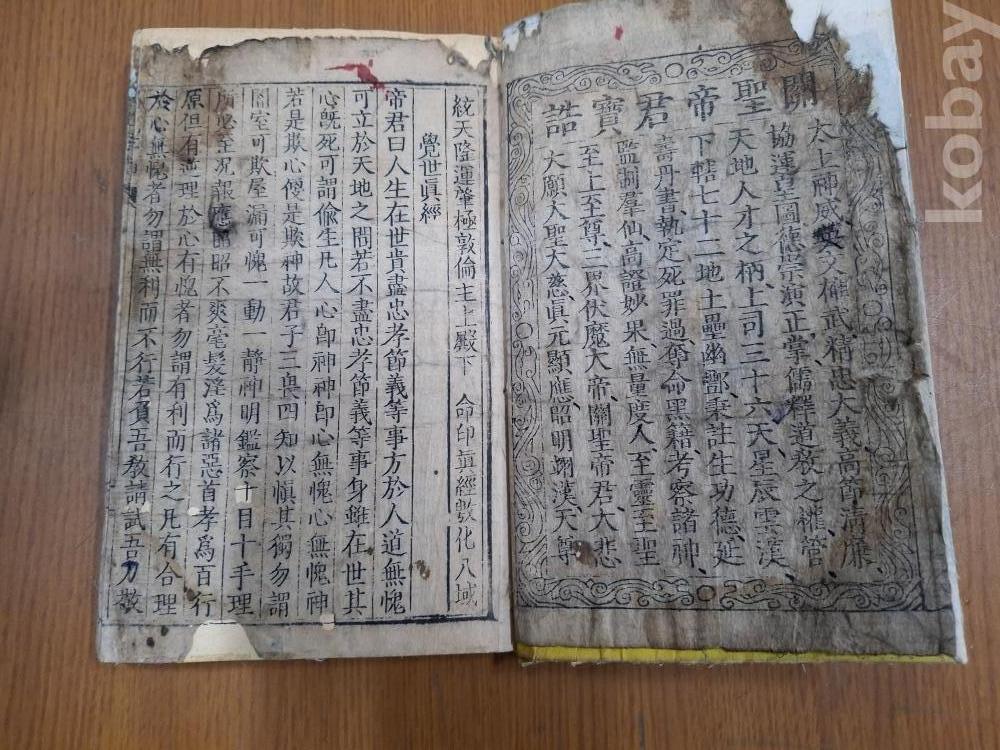 關聖帝君寶誥
太上神威英文雄武精忠大義高節清廉
協運皇圖德崇演正掌儒釋道敎之權管
天地人才之柄上司三十六天星辰雲漢
下轄七十二地土壘幽酆秉註生功德延
壽丹書執定死罪過奪命黑籍考察諸神
監制羣仙高證妙果無量度人至靈至聖
至上至尊三界伏魔大帝關聖帝君大悲
大願大聖大慈眞元顯應昭明翊漢天尊
統天隆運肇極敦倫主上殿下 命印眞經敷化八域
覺世眞經
帝君曰人生在世貴盡忠孝節義等事方於人道無愧
可立於天地之間若不盡忠孝節義等事身雖在世其
心旣死可謂偷生凡人心卽神神卽心無愧心無愧神
若是欺心便是欺神故君子三畏四知以愼其獨勿謂
闇室可欺屋漏可愧一動一靜神明鑑察十目十手理
所必至况報應昭昭不爽毫髮淫爲諸惡首孝爲百行
原但有逆理於心有愧者勿謂有利而行之凡有合理
於心無愧者勿謂無利而不行若負吾敎請試吾刀敬
kobay